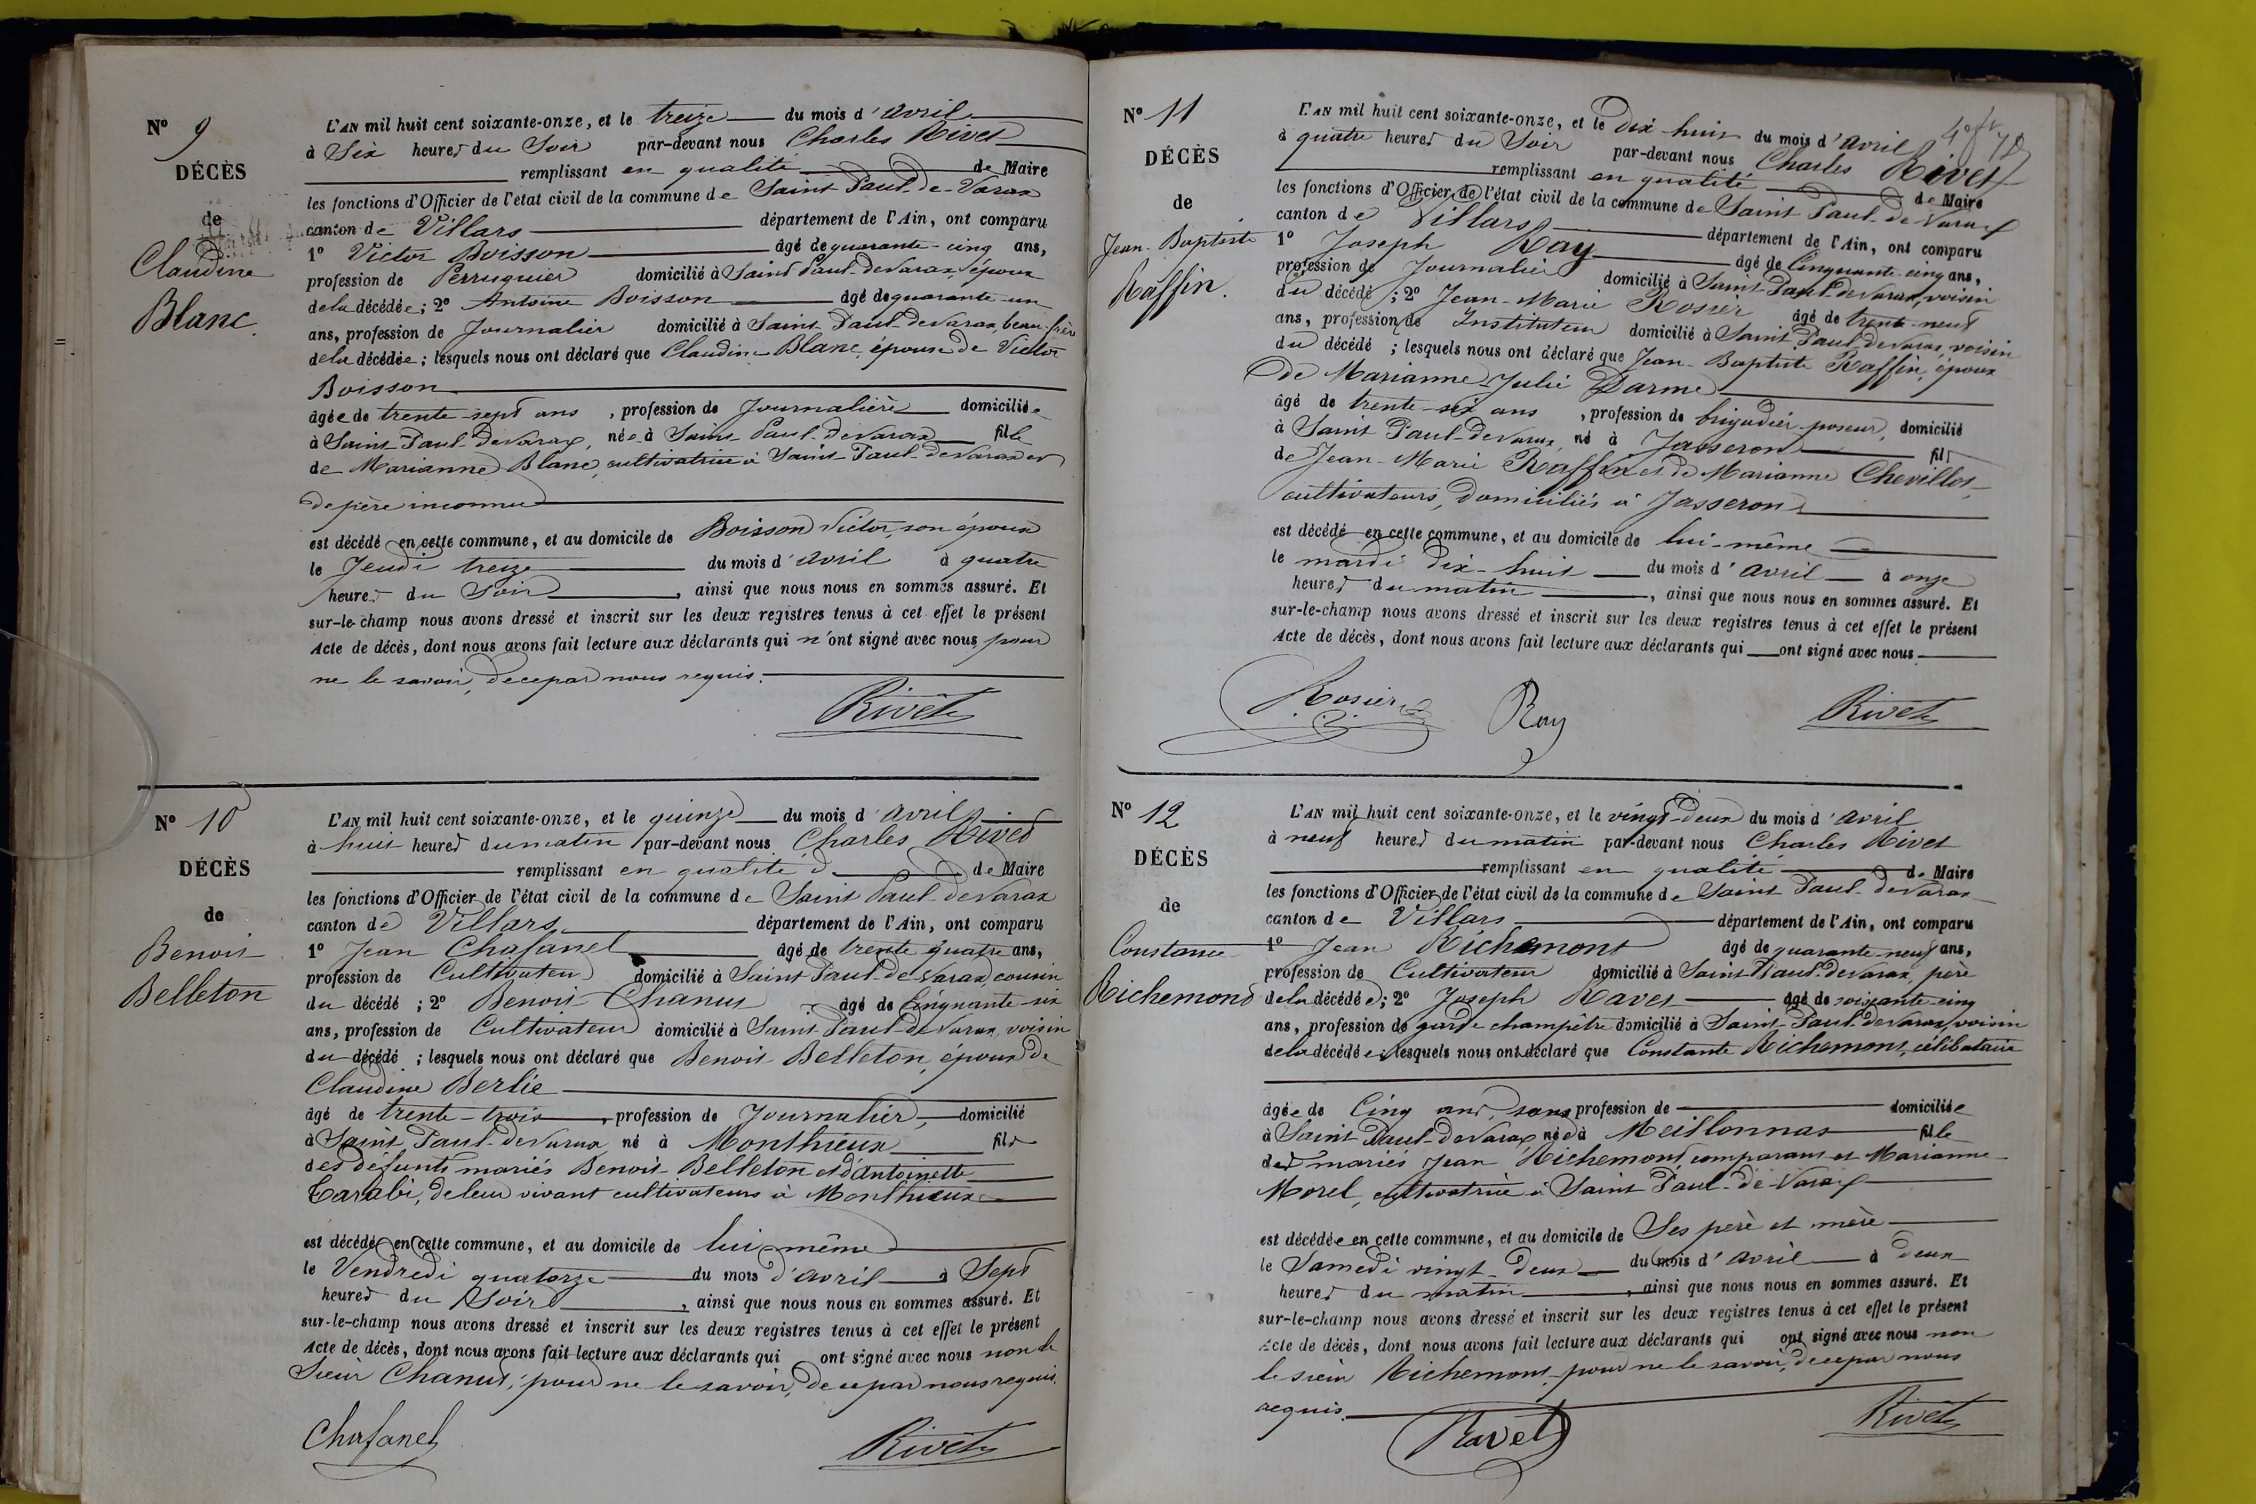 N° 9
DÉCÈS
de
Claudine
Blanc.
L'AN mil huit cent soixante-onze, et le treize du mois d'avril
à Six heures du Soir par-devant nous Charles Rivet
remplissant en qualité de Maire
les fonctions d'Officier de l'état civil de la commune de Saint Paul-de-Varax
canton de Villars département de l'Ain, ont comparu
1° Victor Boisson âgé de quarante-cinq ans,
profession de Perruquier domicilié à Saint Paul-de Varax, époux
de la décédée ; 2° Antoine Boisson âgé de quarante-un
ans, profession de Journalier domicilié à Saint-Paul-de Varax, beau-frère
de la décédée ; lesquels nous ont déclaré que Claudine Blanc, épouse de Victor
Boisson
âgée de trente-sept ans, profession de Journalière domiciliée
à Saint-Paul-de Varax, née à Saint Paul-de Varax fille
de Marianne Blanc, cultivatrice à Saint-Paul-de Varax et
de père inconnu
est décédé en cette commune, et au domicile de Boisson Victor, son époux
le Jeudi treize du mois d'avril à quatre
heures du Soir, ainsi que nous nous en sommes assuré. Et
sur-le-champ nous avons dressé et inscrit sur les deux registres tenus à cet effet le présent
Acte de décès, dont nous avons fait lecture aux déclarants qui n'ont signé avec nous, pour
ne le savoir, de ce par nous requis.
Rivet
N° 10
DÉCÈS
de
Benoit
Belleton
L'AN mil huit cent soixante-onze, et le quinze du mois d'avril
à huit heures du matin par-devant nous Charles Rivet
remplissant en qualité d de Maire
les fonctions d'Officier de l'état civil de la commune de Saint Paul-de Varax
canton de Villars département de l'Ain, ont comparu
1° Jean Chafanel âgé de trente quatre ans,
profession de Cultivateur domicilié à Saint Paul-de Varax, cousin
du décédé ; 2° Benoit Chanut âgé de Cinquante-six
ans, profession de Cultivateur domicilié à Saint Paul-de Varax, voisin
du décédé ; lesquels nous ont déclaré que Benoit Belleton, époux de
Claudine Berlie
âgé de trente-trois, profession de Journalier, domicilié
à Saint Paul-de Varax né à Monthieux fils
des défunts mariés Benoit Belleton et d'Antoinette
Carabi, de leur vivant cultivateurs à Monthieux
est décédé en cette commune, et au domicile de lui-même
le Vendredi quatorze du mois d'avril à Sept
heures du Soir, ainsi que nous nous en sommes assuré. Et
sur-le-champ nous avons dressé et inscrit sur les deux registres tenus à cet effet le présent
Acte de décès, dont nous avons fait lecture aux déclarants qui ont signé avec nous non le
Sieur Chanut, pour ne le savoir, de ce par nous requis.
Chafanel
Rivet
N° 11
DÉCÈS
de
Jean-Baptiste
Raffin.
L'AN mil huit cent soixante-onze, et le dix-huit du mois d'avril
à quatre heures du Soir par-devant nous Charles Rivet
remplissant en qualité de Maire
les fonctions d'Officier de l'état civil de la commune de Saint Paul-de Varax
canton de Villars département de l'Ain, ont comparu
1° Joseph Ray âgé de Cinquante-cinq ans,
profession de Journalier domicilié à Saint-Paul-de Varax, voisin
du décédé ; 2° Jean-Marie Rosier âgé de trente-neuf
ans, profession de Instituteur domicilié à Saint Paul-de Varax, voisin
du décédé ; lesquels nous ont déclaré que Jean-Baptiste Raffin, époux
de Marianne-Julie Darme
âgé de trente-six ans, profession de brigadier poseur, domicilié
à Saint Paul-de Varax, né à Jasseron fils
de Jean-Marie Raffin et de Marianne Chevillot,
cultivateurs, domiciliés à Jasseron
est décédé en cette commune, et au domicile de lui-même
le mardi dix-huit du mois d'avril à onze
heures du matin, ainsi que nous nous en sommes assuré. Et
sur-le-champ nous avons dressé et inscrit sur les deux registres tenus à cet effet le présent
Acte de décès, dont nous avons fait lecture aux déclarants qui ont signé avec nous
Rosier
Ray
Rivet
N° 12
DÉCÈS
de
Constance
Richemond
L'AN mil huit cent soixante-onze, et le vingt-deux du mois d'avril
à neuf heures du matin par-devant nous Charles Rivet
remplissant en qualité de Maire
les fonctions d'Officier de l'état civil de la commune de Saint Paul-de Varax
canton de Villars département de l'Ain, ont comparu
1° Jean Richemont âgé de quarante-neuf ans,
profession de Cultivateur domicilié à Saint-Paul-de Varax, père
de la décédée ; 2° Joseph Ravet âgé de soixante-cinq
ans, profession de garde champêtre domicilié à Saint-Paul-de Varax, voisin
de la décédée ; lesquels nous ont déclaré que Constante Richemont, célibataire
âgée de Cinq ans, sans profession de domiciliée
à Saint Paul-de Varax, née à Meillonnas fille
des mariés Jean Richemont, comparant et Marianne
Morel, cultivatrice à Saint Paul-de-Varax
est décédée en cette commune, et au domicile de Ses père et mère
le Samedi vingt-deux du mois d'avril à deux
heures du matin, ainsi que nous nous en sommes assuré. Et
sur-le-champ nous avons dressé et inscrit sur les deux registres tenus à cet effet le présent
Acte de décès, dont nous avons fait lecture aux déclarants qui ont signé avec nous non
le sieur Richemont, pour ne le savoir, de ce par nous
requis.
Ravet
Rivet